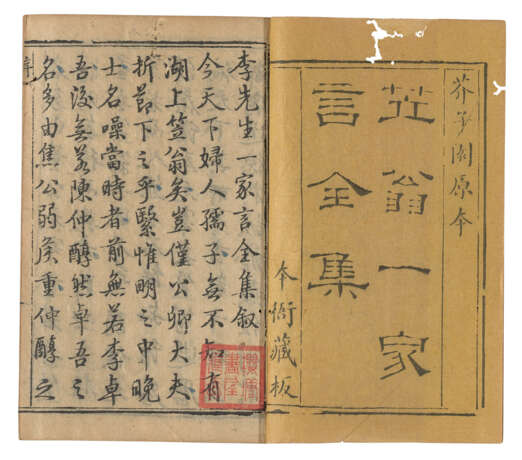 芥子園原本
笠翁一家
言全集
本衙藏板
李先生一家言全集叙
今天下婦人孺子無不知有
湖上笠翁矣豈僅公卿大夫
折節下之乎繄惟明之中晚
士名噪當時者前無若李卓
吾後無若陳仲醇然卓吾之
名多由焦公弱侯重仲醇之